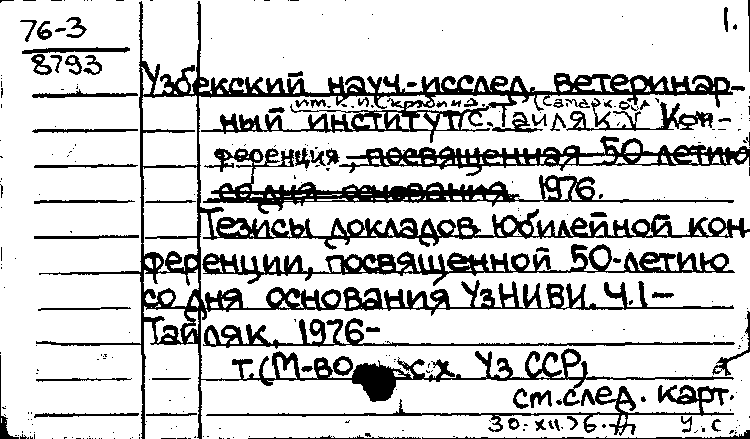 1.
76-3
8793
Узбекский науч.-исслед. ветеринар-
им. К.И. Скрябина (Самарк. обл.
ный институт, с. Тайляк. Кон-
ференция, посвященная 50-летию
со дня основания. 1976.
Тезисы докладов юбилейной кон-
ференции, посвященной 50-летию
со дня основания УзНИВИ. Ч.1-
Тайляк, 1976-
т. (М-во с.х. Уз ССР)
см. след. карт.
30.XII.76. у.с.